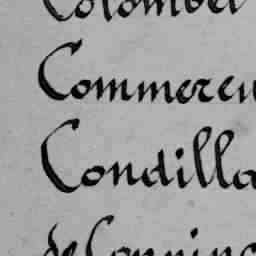 Colombel
Commeren
Condilla
de Conninc